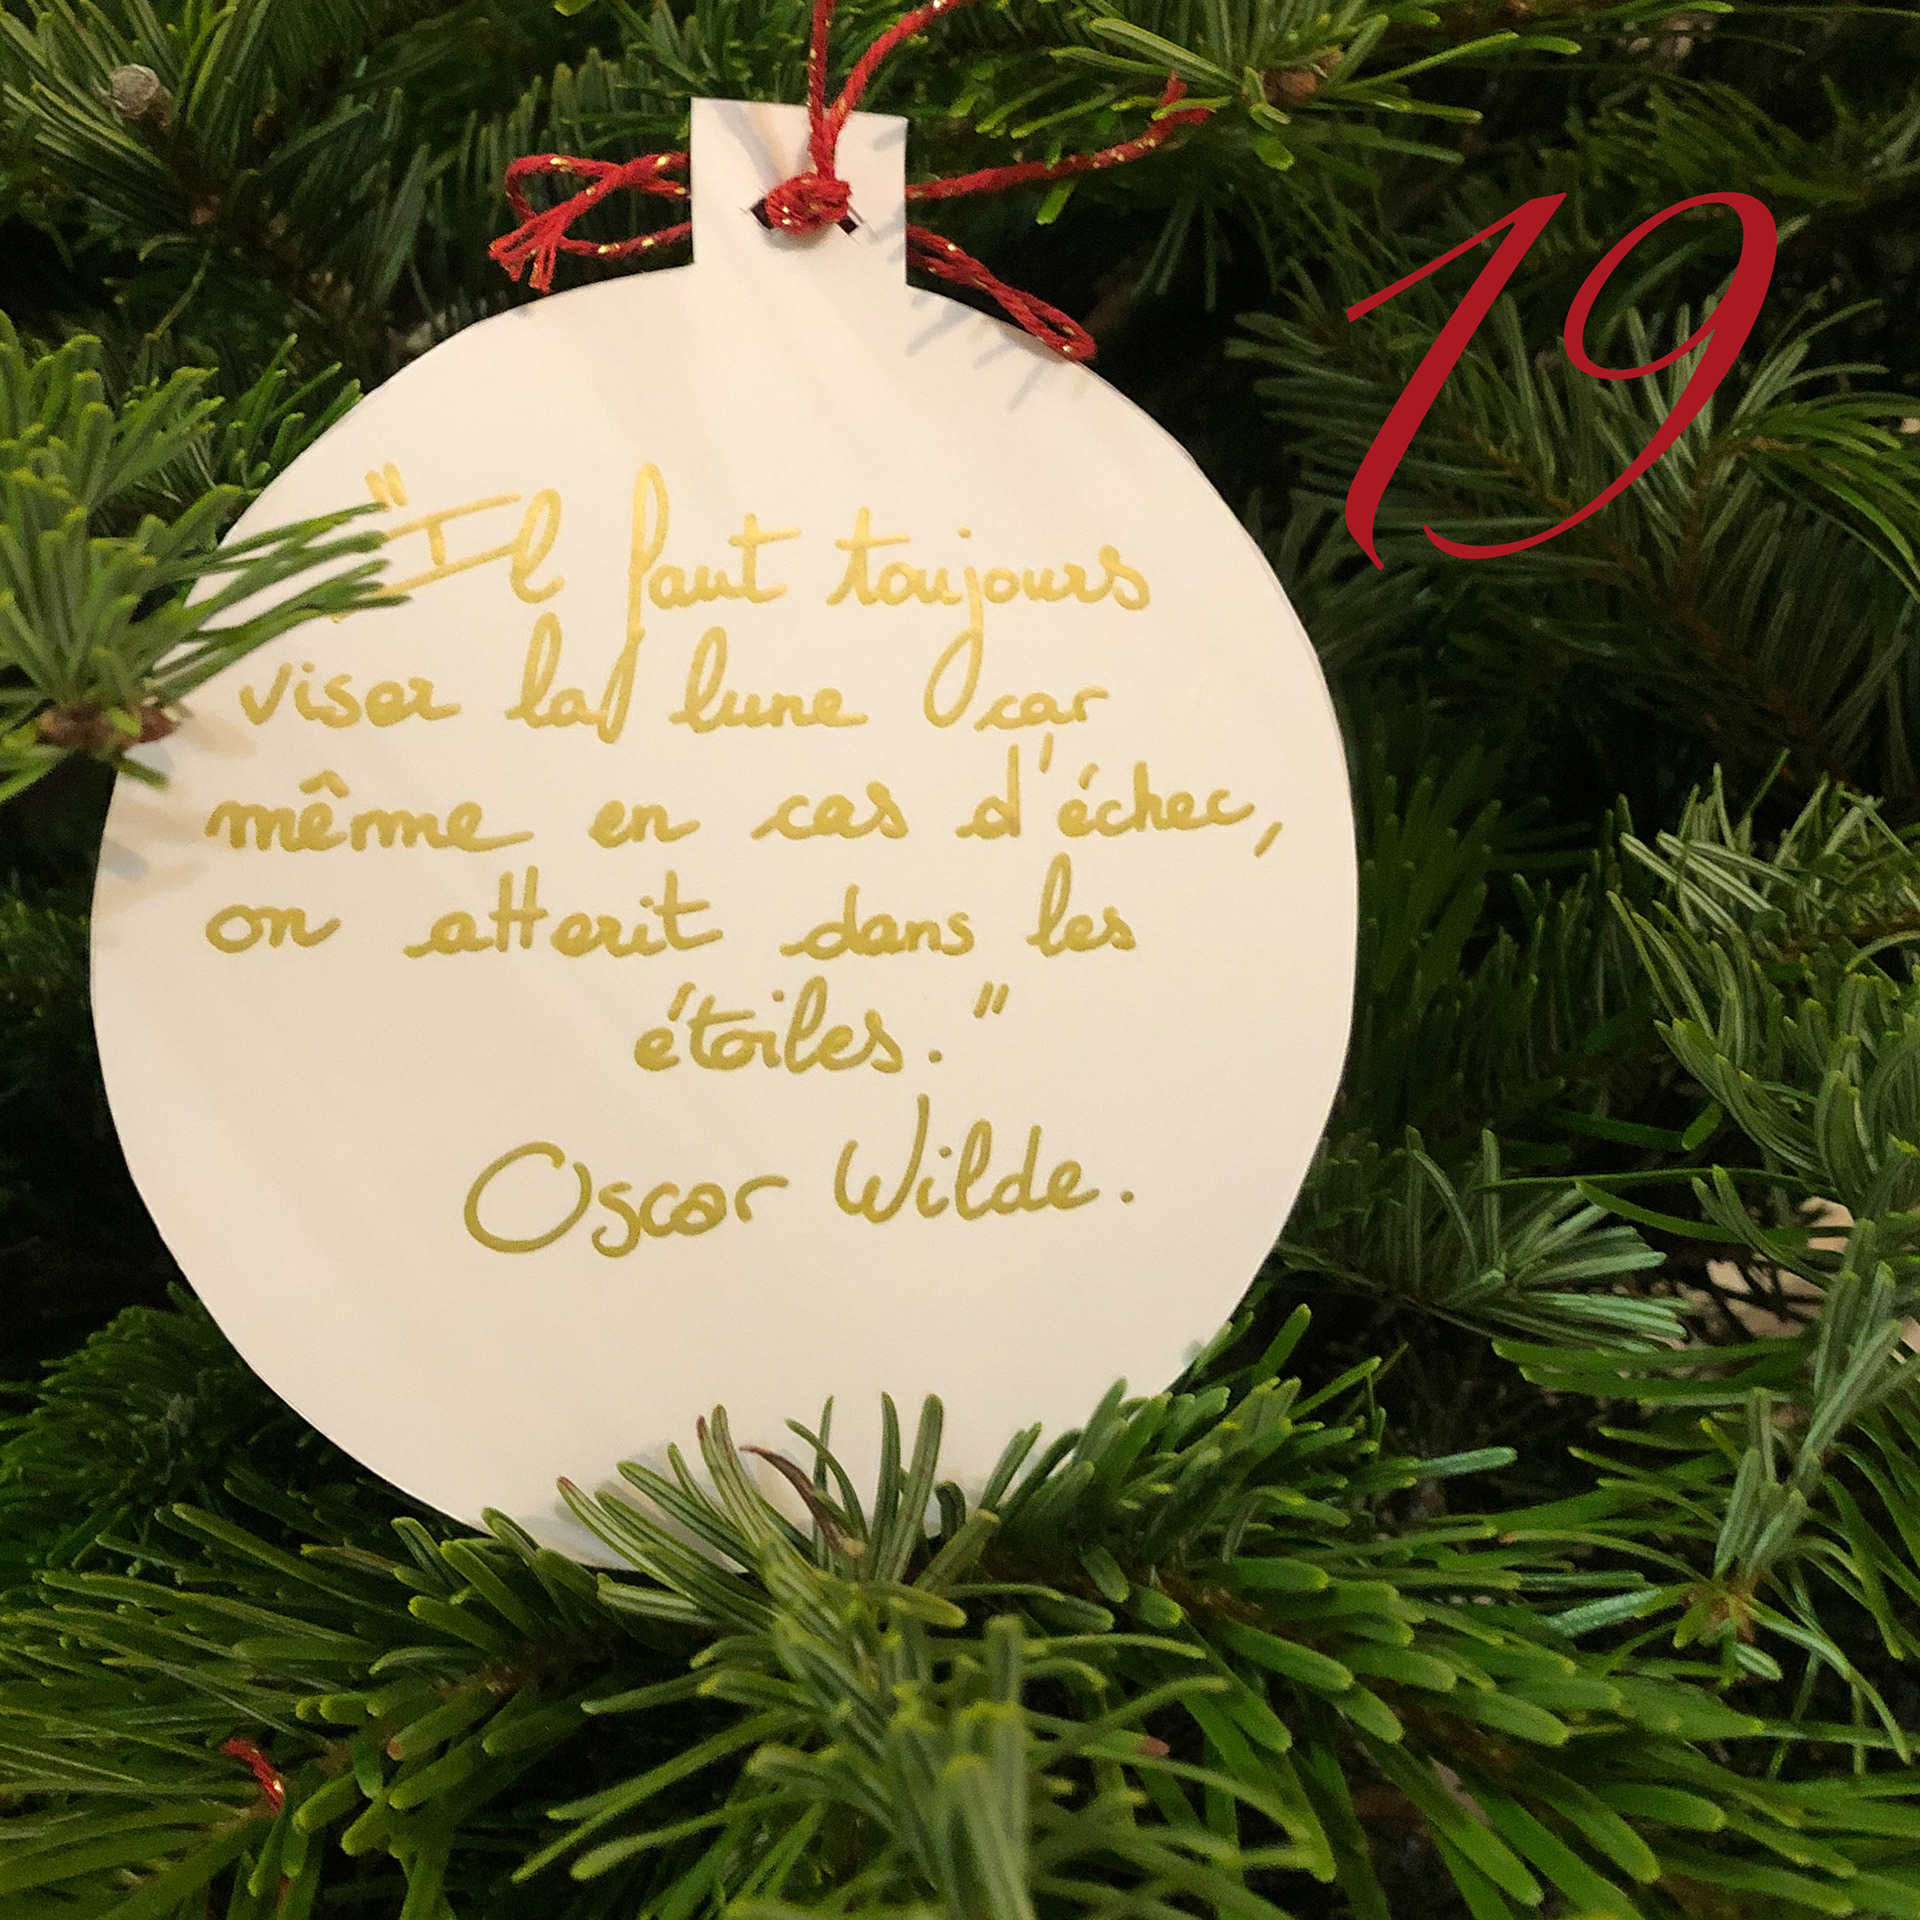 19
"Il faut toujours
viser la lune car
même en cas d'échec,
on atterit dans les
étoiles."
Oscar Wilde.